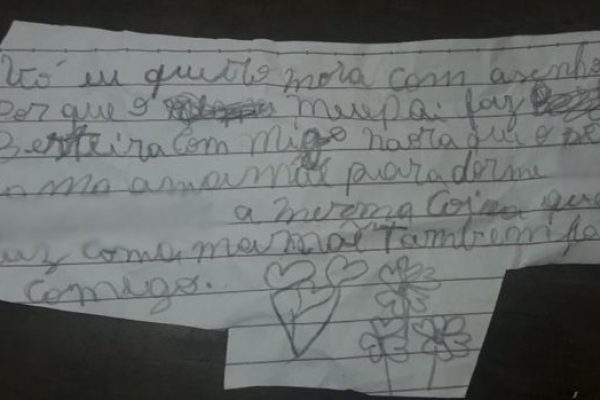 Vó eu quero mora com a senho
Por que o meu pai faz
Besteira com migo na ora que o ne
a mamãe para dormi
a mesma coisa que
faz coma mamãe tambem fa
comigo.